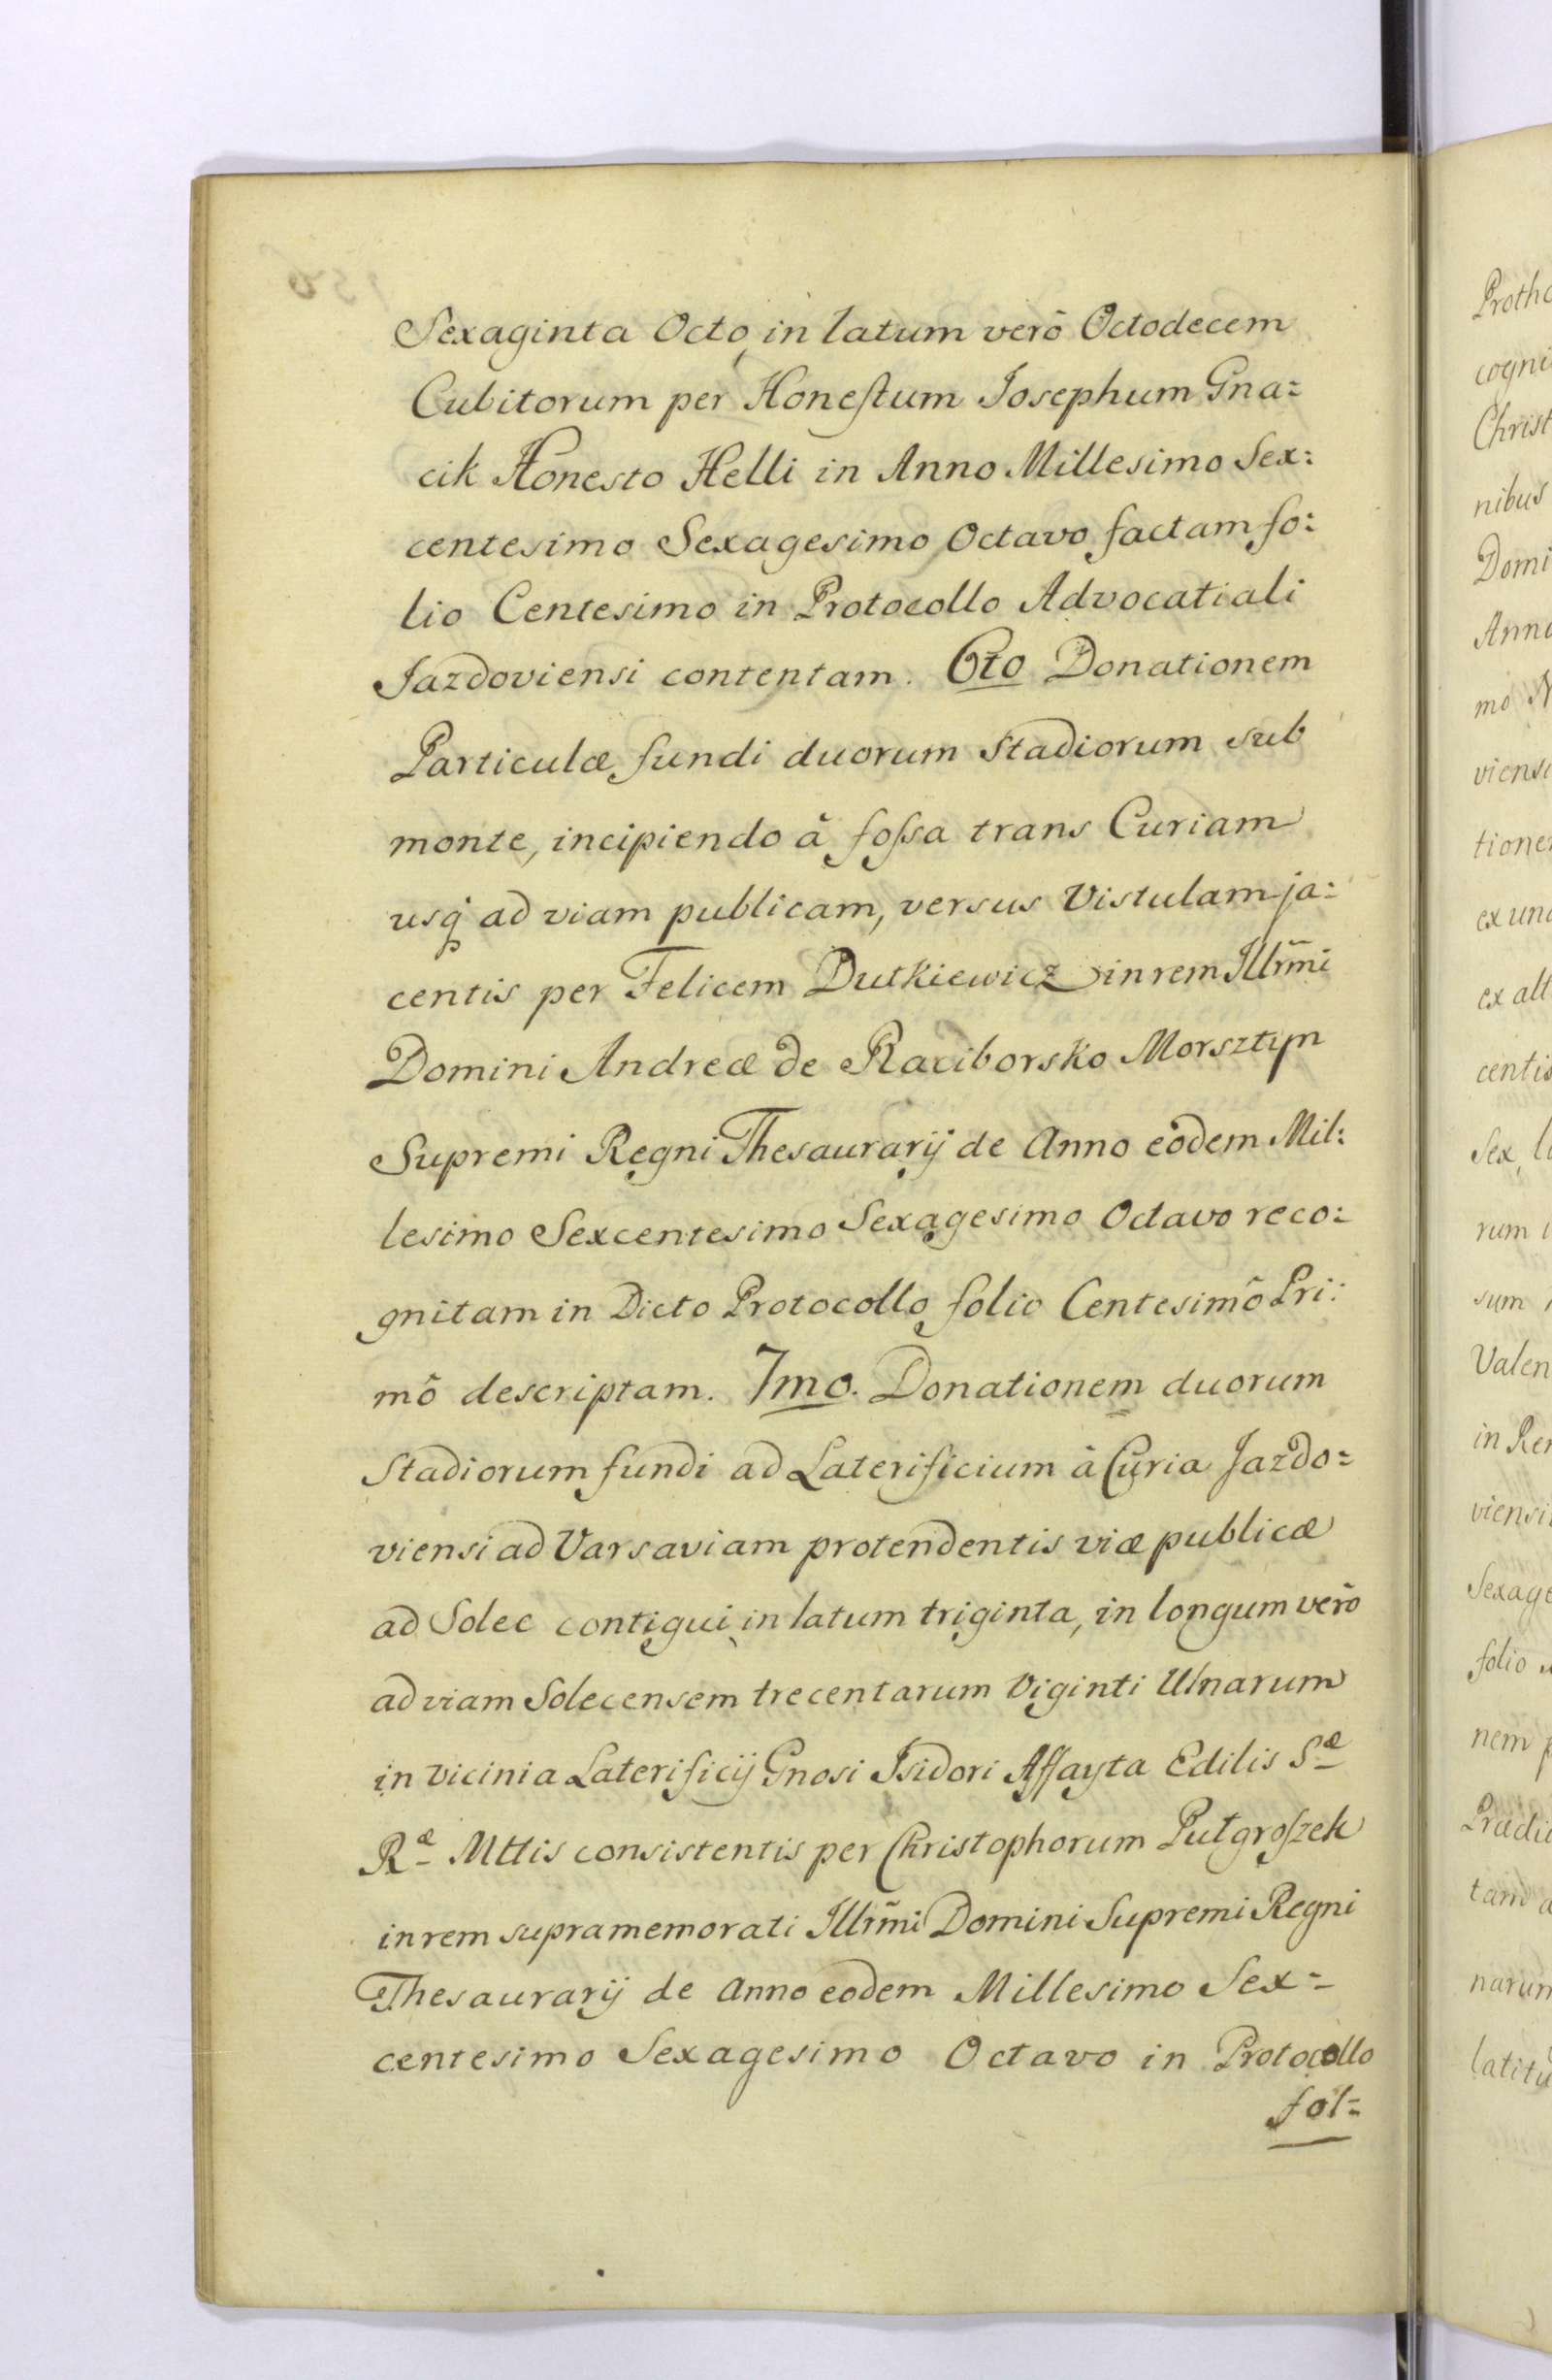 Sexaginta Octo, in latum verô Octodecem
Cubitorum per Honestum Josephum Gna=
cik Honesto Helli in Anno Millesimo Sex:
centesimo Sexagesimo Octavo factam fo:
lio Centesimo in Protocollo Advocatiali
Jazdoviensi contentam. 6to Donationem
Particulæ fundi duorum Stadiorum sub
monte, incipiendo â fossa trans Curiam
usq ad viam publicam, versus Vistulam ja:
centis per Felicem Dutkiewicz in rem Illrm̃i
Domini Andreæ de Raciborsko Morsztyn
Supremi Regni Thesaurarij de Anno eodem Mil:
lesimo Sexcentesimo Sexagesimo Octavo reco:
gnitam in Dicto Protocollo folio Centesimô Pri:
mô descriptam. 7mo. Donationem duorum
Stadiorum fundi ad Laterificium â Curia Jazdo=
viensi ad Varsaviam protendentis viæ publicæ
ad Solec contigui, in latum triginta, in longum verô
ad viam Solecensem trecentarum Viginti Ulnarum
in vicinia Laterificij Gnosi Isidori Affayta Edilis Sæ
Ræ Mttis consistentis per Christophorum Pułgroszek
in rem supramemorati Illrm̃i Domini Supremi Regni
Thesaurarij de Anno eodem Millesimo Sex=
centesimo Sexagesimo Octavo in Protocollo
fol=
Protho
cogni
Christ
nibus
Domi
Anno
mo
viensi
tione
ex un
ex alt
centis
Sex, l
rum i
sum
Valen
in Re
viensi
Sexage
folio
nem p
Prædi
tam a
narum
latitu